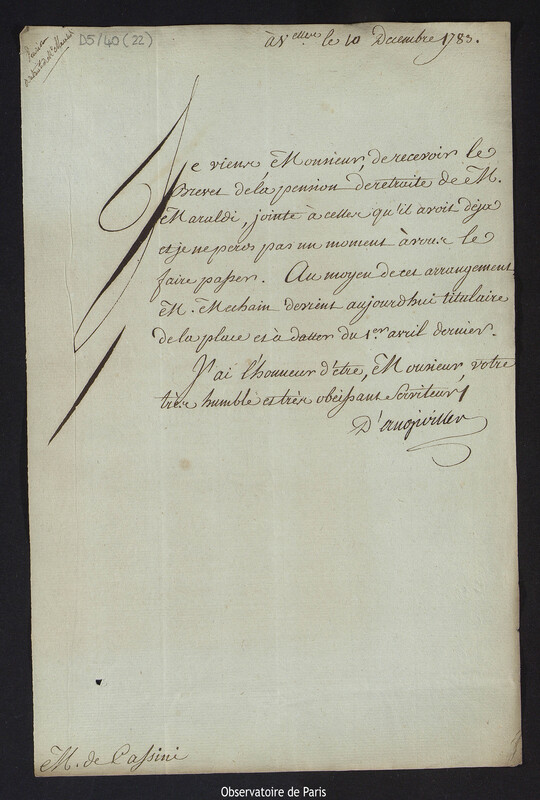 D5/40 (22)
à V.elles le 10 Decembre 1783.
Je viens, Monsieur, de recevoir le
Brevet de la pension de retraite de M.
Maraldi, jointe à celles qu'il avoit déja
et je ne perds pas un moment à vous le
faire passer. Au moyen de cet arrangement
M. Mechain devient aujourdhui titulaire
de la place et à datter du 1.er avril dernier.
J'ai l'honneur d'être, Monsieur, votre
très humble et très obéissant Serviteur
D'angiviller
M. de Cassini
Observatoire de Paris